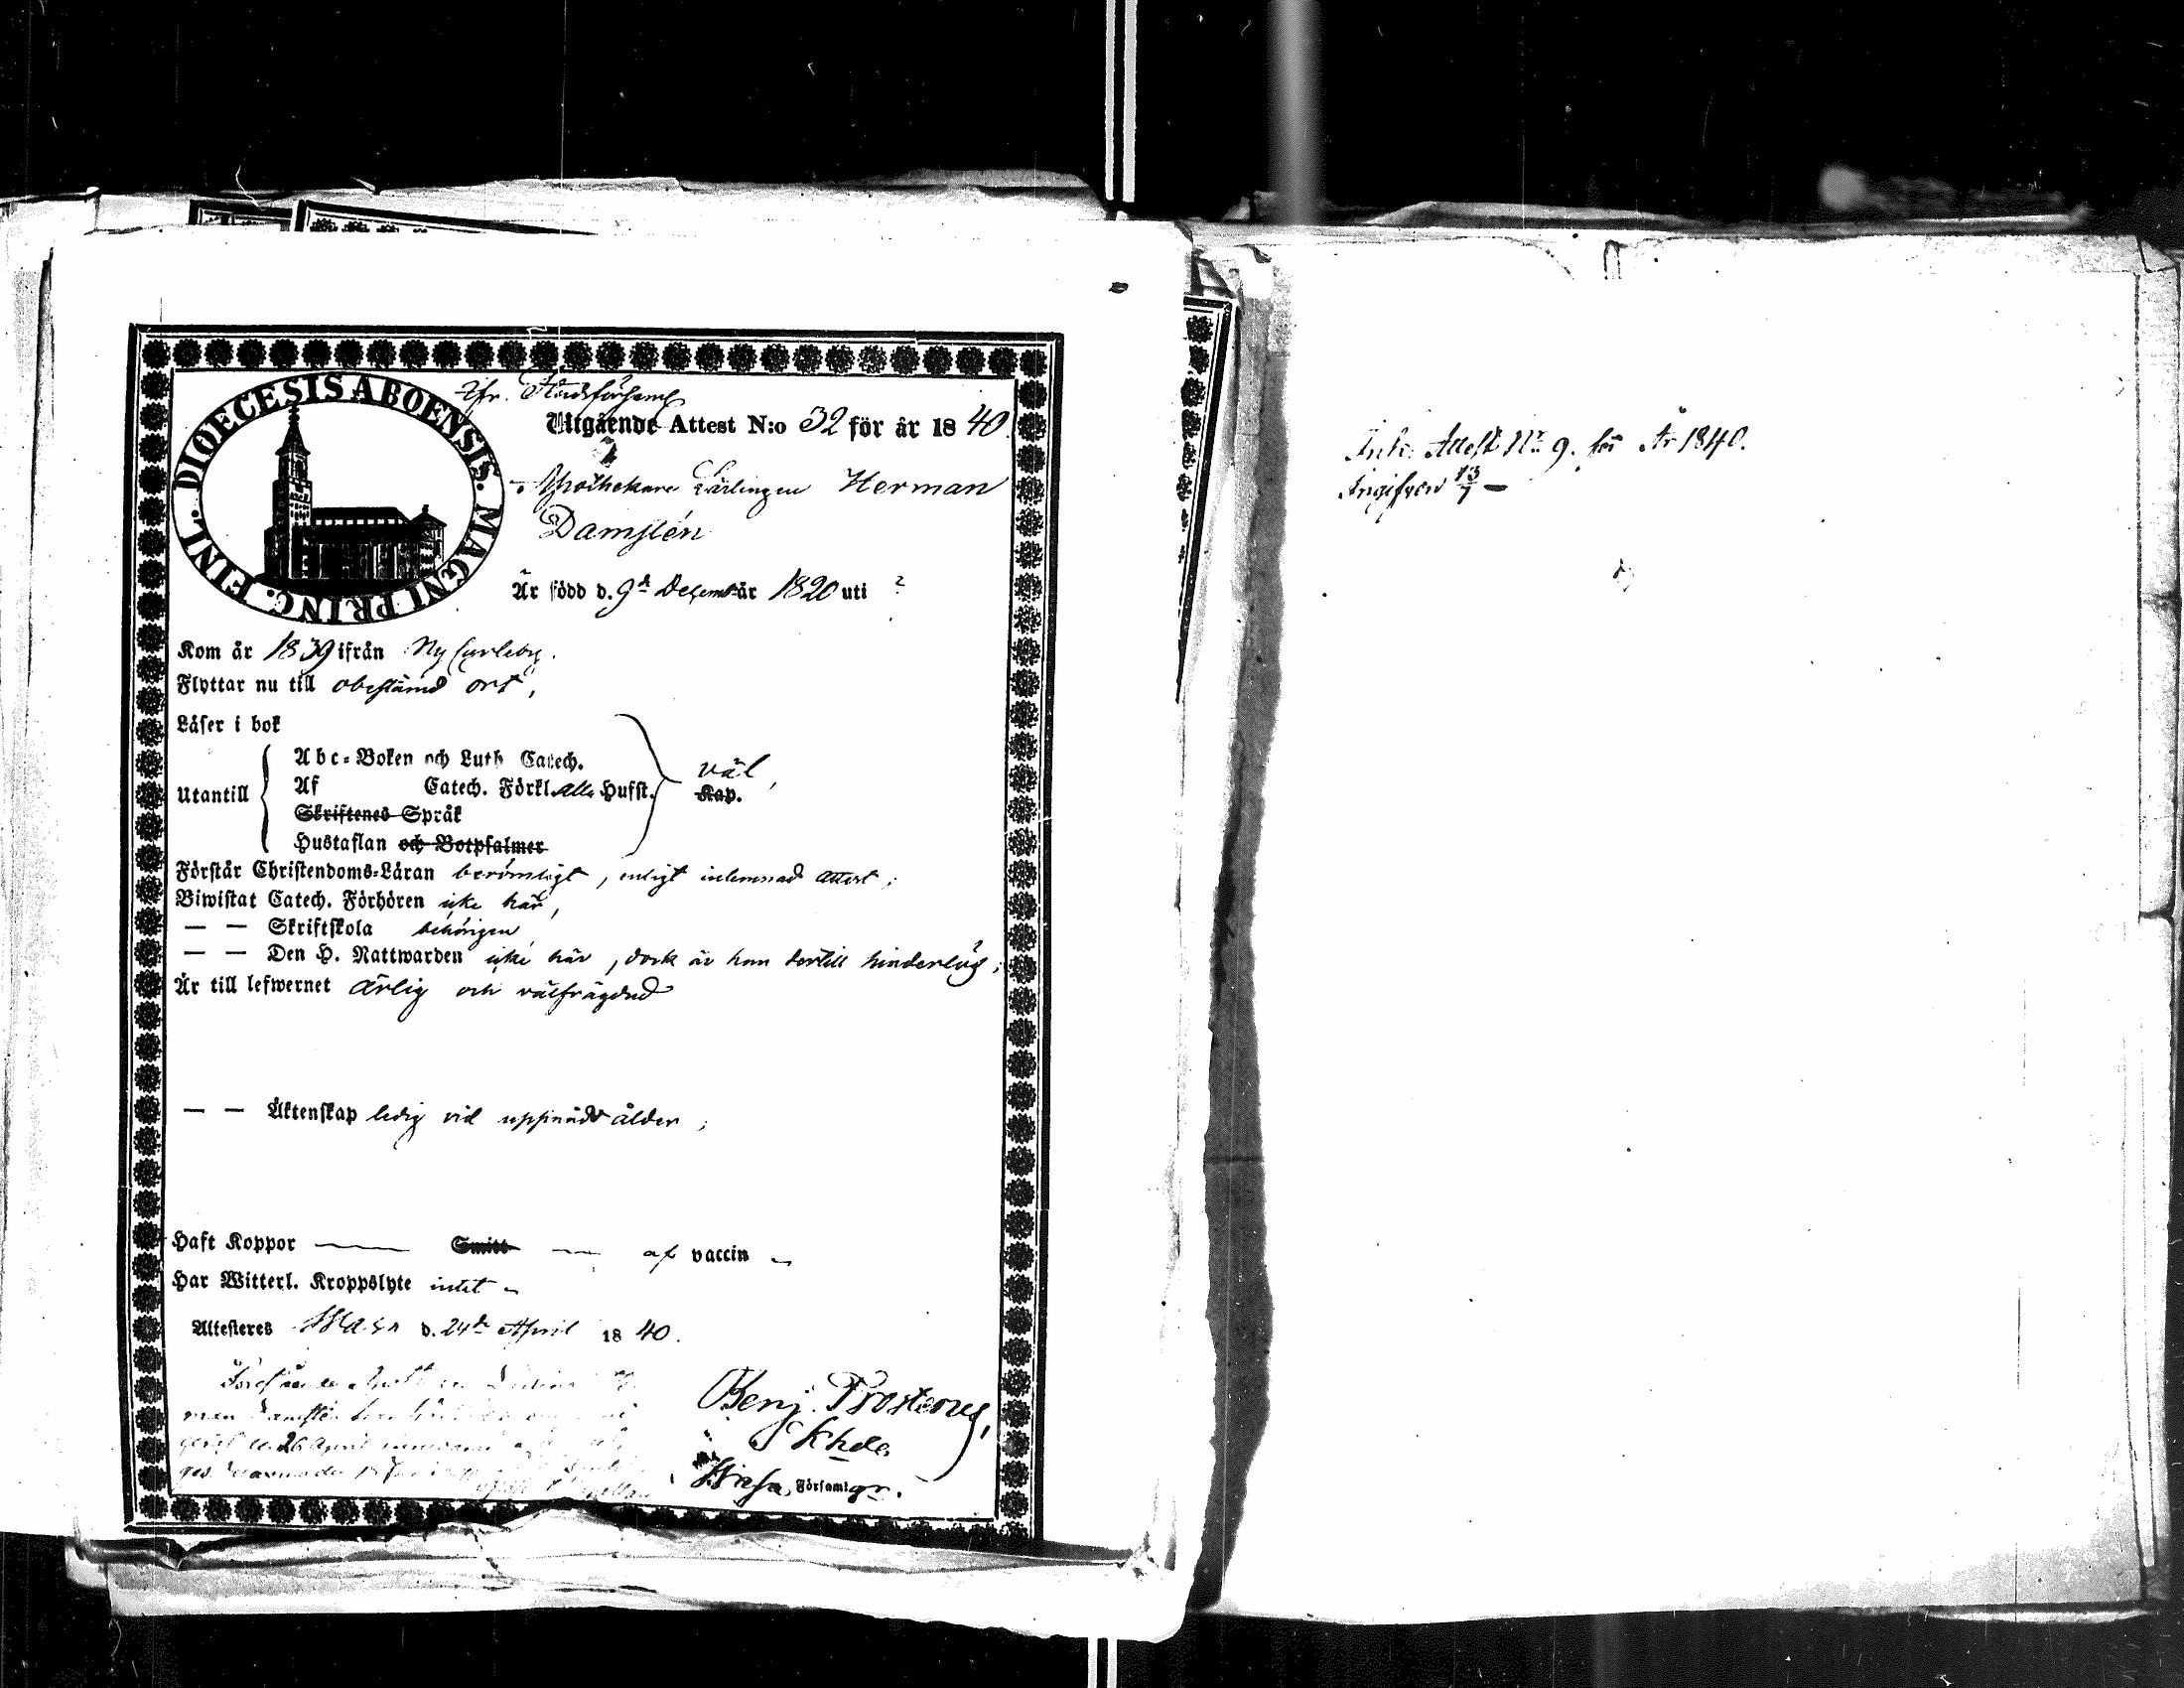 DIOECESIS ABOENSIS. MAGNI PRINC. FINL.
fr. Stadsförsaml
Utgående Attest N:o 32 för år 1840.
Apothekare Lärlingen Herman
Damstén
Är född d. 9de Decemb år 1820 uti ?
Kom år 1839 ifrån Ny Carleby.
Flyttar nu till obestämd ort,
Läser i bok
Abc-Boken och Luth Catech.
väl,
Utantill
Af Catech. Förkl. alla Hufst. Kap.
Skriftenes Språk
Hustaflan och Botpsalmer
Förstår Christendoms-Läran berömligt, enligt inlemnad attest;
Biwistat Catech. Förhören icke här,
— — Skriftskola behörigen
— — Den H. Nattwarden icke här, dock är han dertill hinderlös;
Är till lefwernet ärlig och välfrägdad
— — Äktenskap ledig vid uppnådd ålder;
Haft Koppor — Smitt — af vaccin
Har Witterl. Kroppslyte intet
Attesteres Wasa d. 24de April 1840.
Benj. Frosterus,
Khde
Wasa Församlgr.
26 April
Ink. Attest No 9. för År 1840.
Angifven 13/7 —